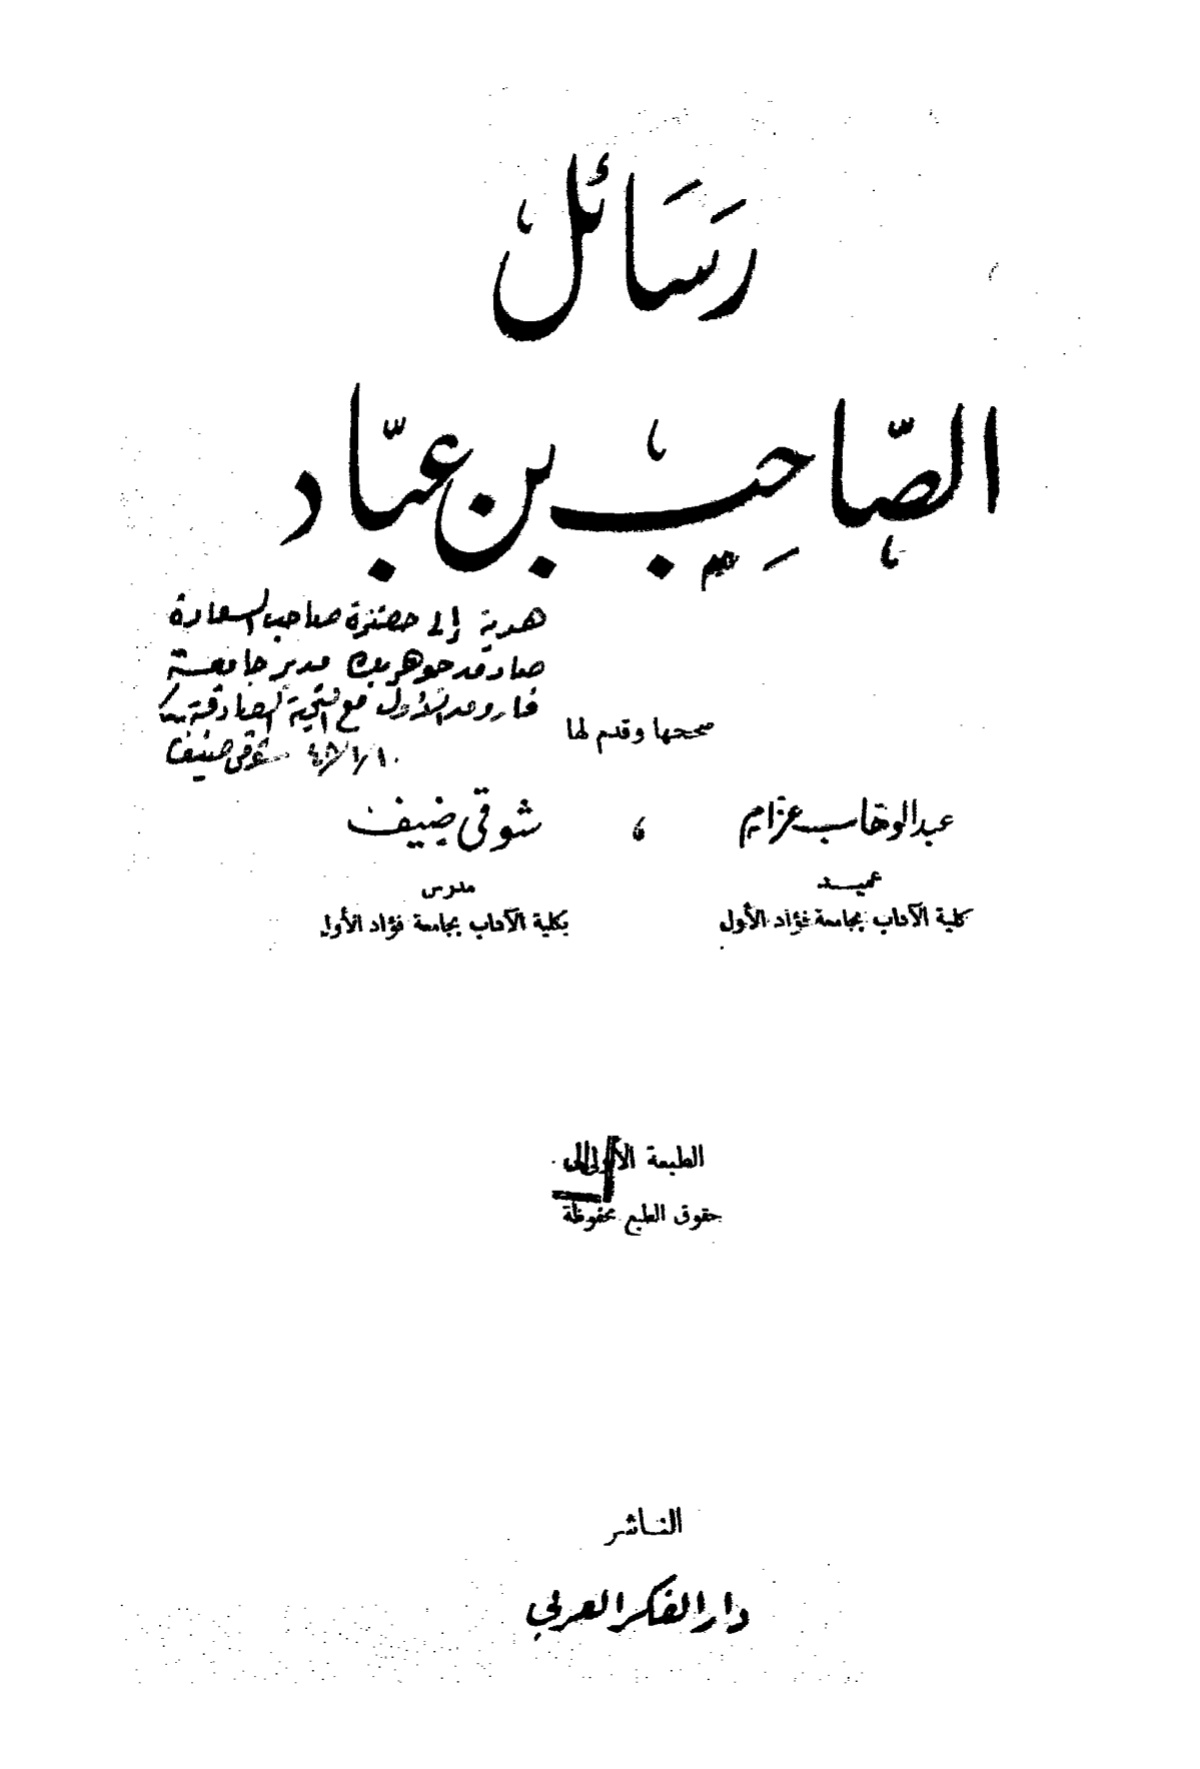 رَسَائل
الصّاحِب بن عبّاد
هدية إلى حضرة صاحب السعادة
صادق جوهر بك مدير جامعة
فاروق الأول مع التحية الصادقة
شوقي ضيف ١٠/١/٤٨
صححها وقدم لها
عبد الوهاب عزام ، شوقي ضيف
عميد مدرس
كلية الآداب بجامعة فؤاد الأول بكلية الآداب بجامعة فؤاد الأول
الطبعة الأولى
حقوق الطبع محفوظة
الناشر
دار الفكر العربي